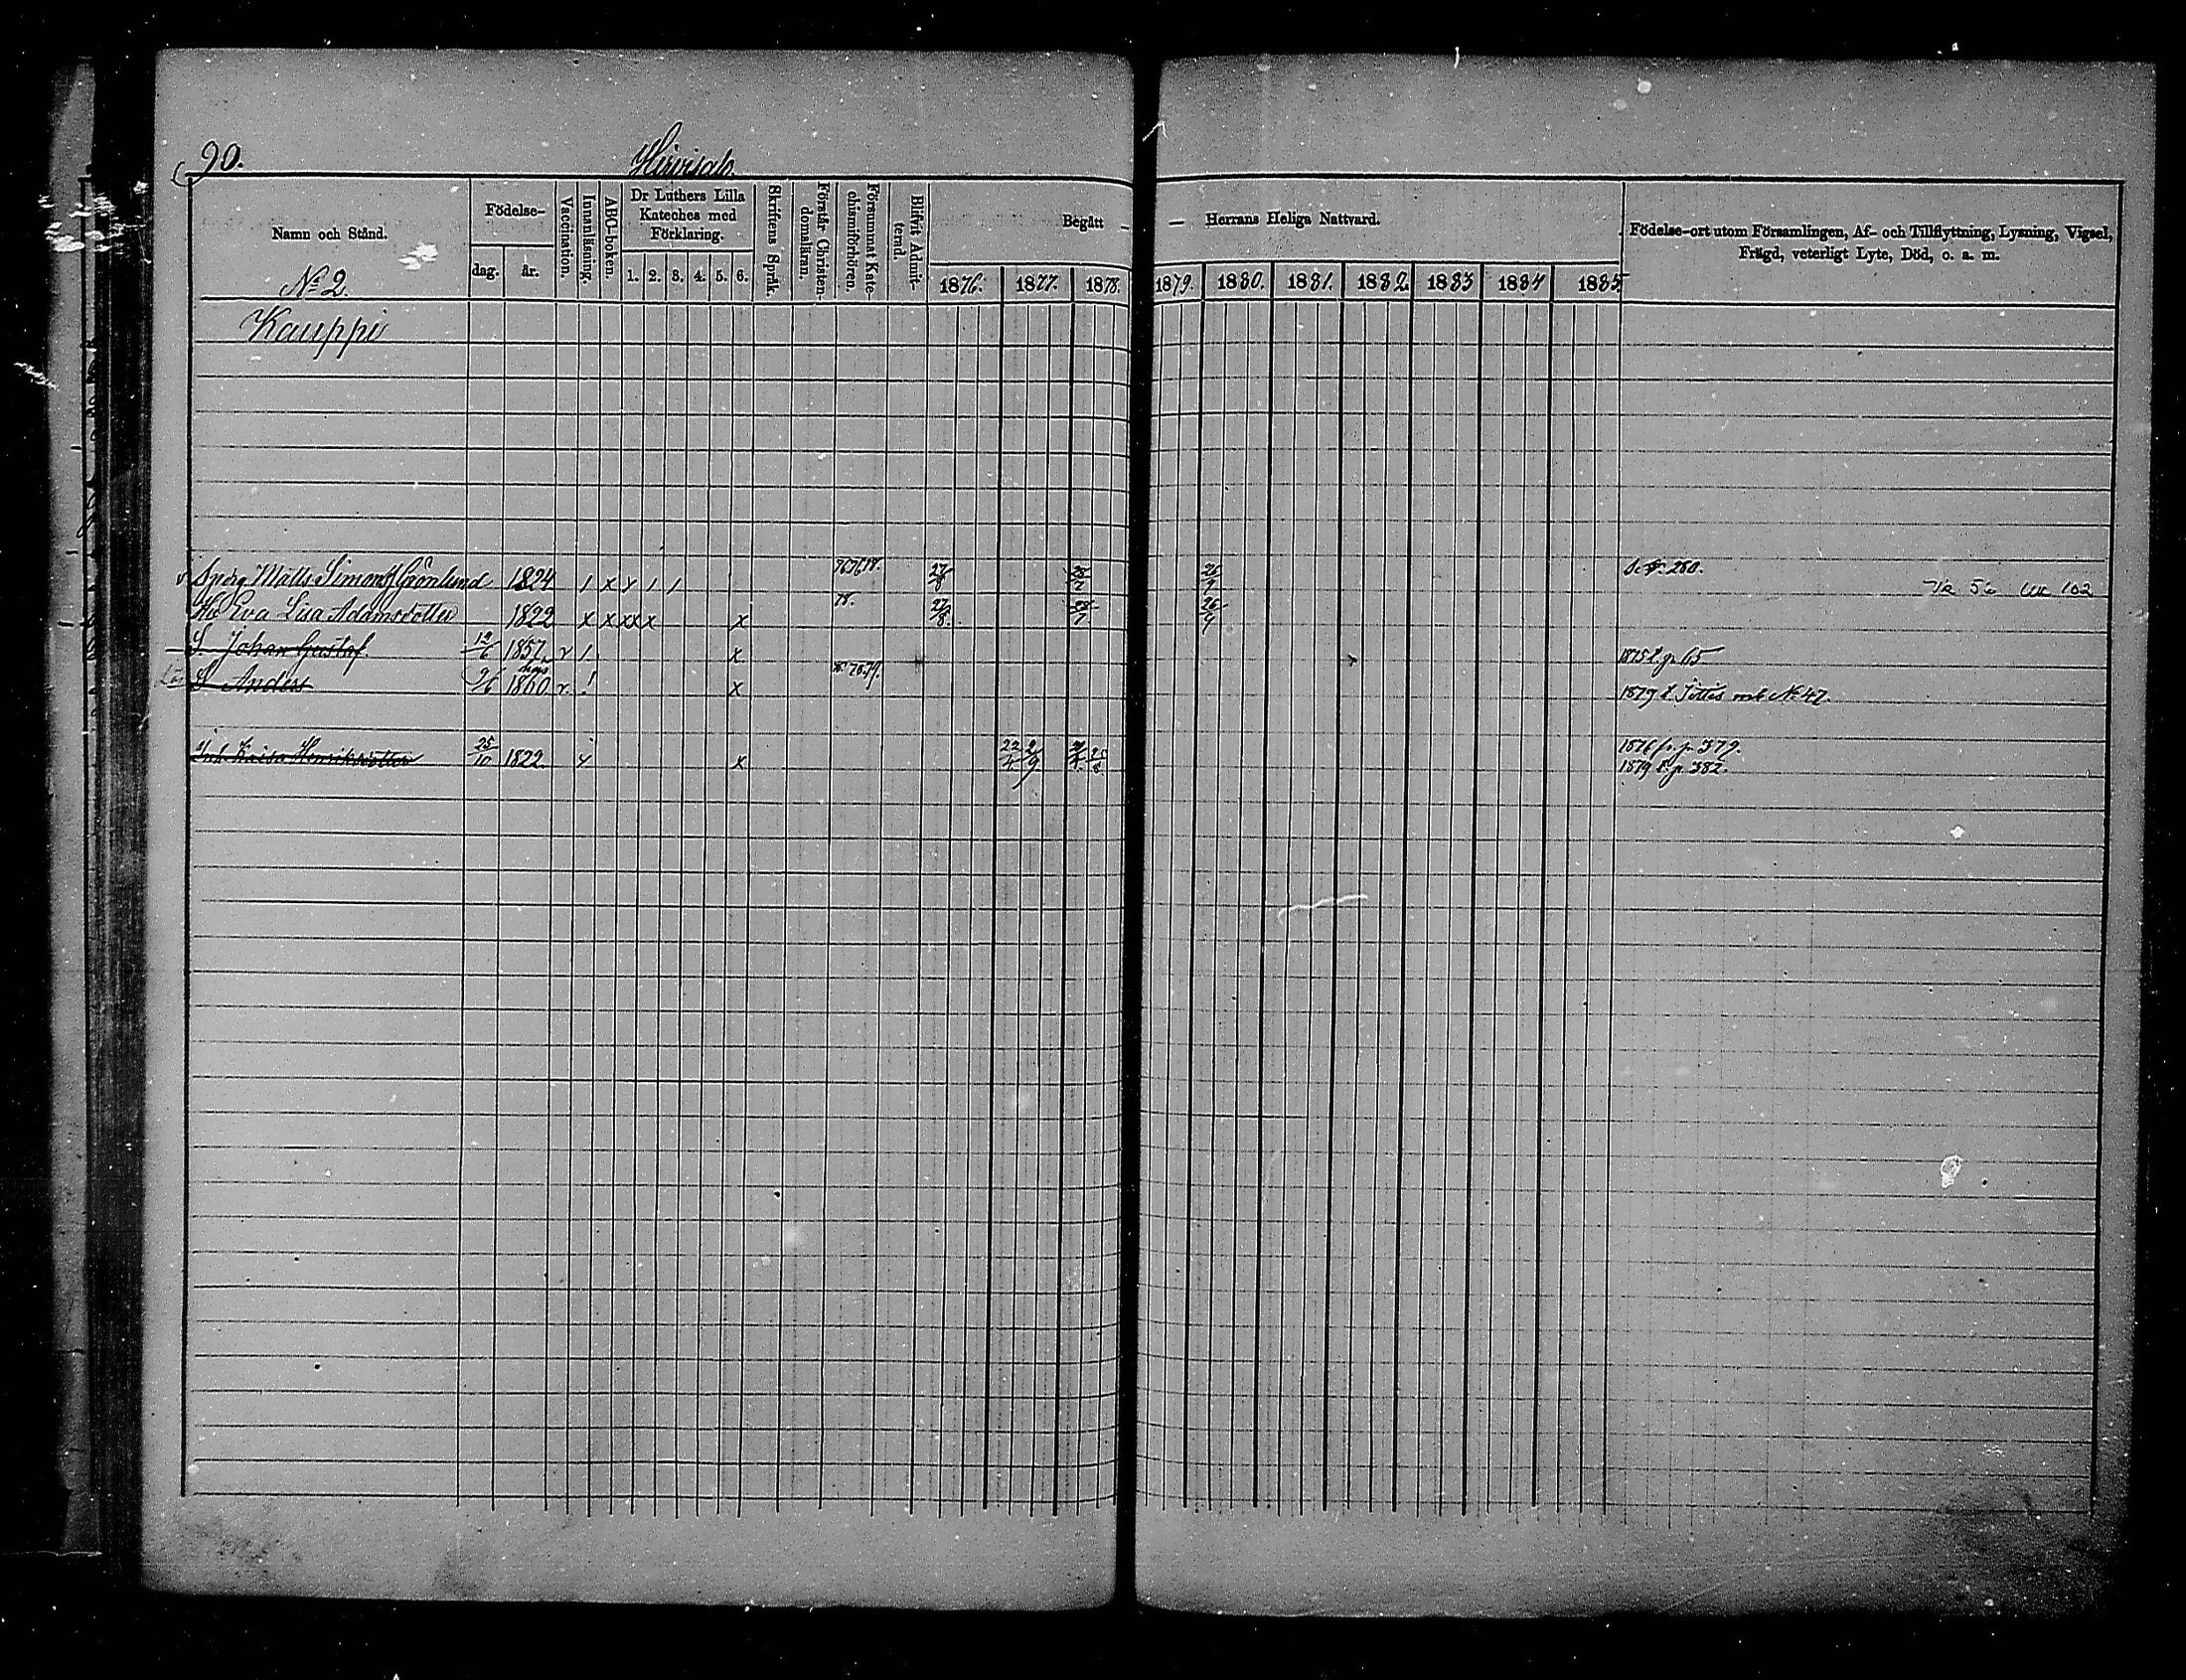 90.
Hirvisalo.
Namn och Stånd.
Födelse-
dag. år.
Vaccination.
Innanläsning.
ABC-boken.
Dr Luthers Lilla
Kateches med
Förklaring.
1. 2. 3. 4. 5. 6.
Skriftens Språk.
Förstår Christen-
domsläran.
Försummat Kate-
chismiförhören.
Blifvit Admit-
terad.
Begått — — Herrans Heliga Nattvard.
1876. 1877. 1878. 1879. 1880. 1881. 1882. 1883 1884 1885
Födelse-ort utom Församlingen, Af- och Tillflyttning, Lysning, Vigsel,
Frägd, veterligt Lyte, Död, o. s. m.
No 2.
Kauppi
Matts Simonss Grönlund 1824 1 x x 1 1 27/8 26/9 280.
Eva Lisa Adamsdotter 1822 x x x x x x 78. 27/8 26/9
S. Johan Gustaf. 12/6 1857 v 1. x 1875 l. p. 65
S. Anders 9/6 1860 v. ! x 1879 l. No 47.
Kaisa Henriksdotter 25/10 1822 x 22/4 2/9 1876 fr. p. 379.
1879 l. p. 382.